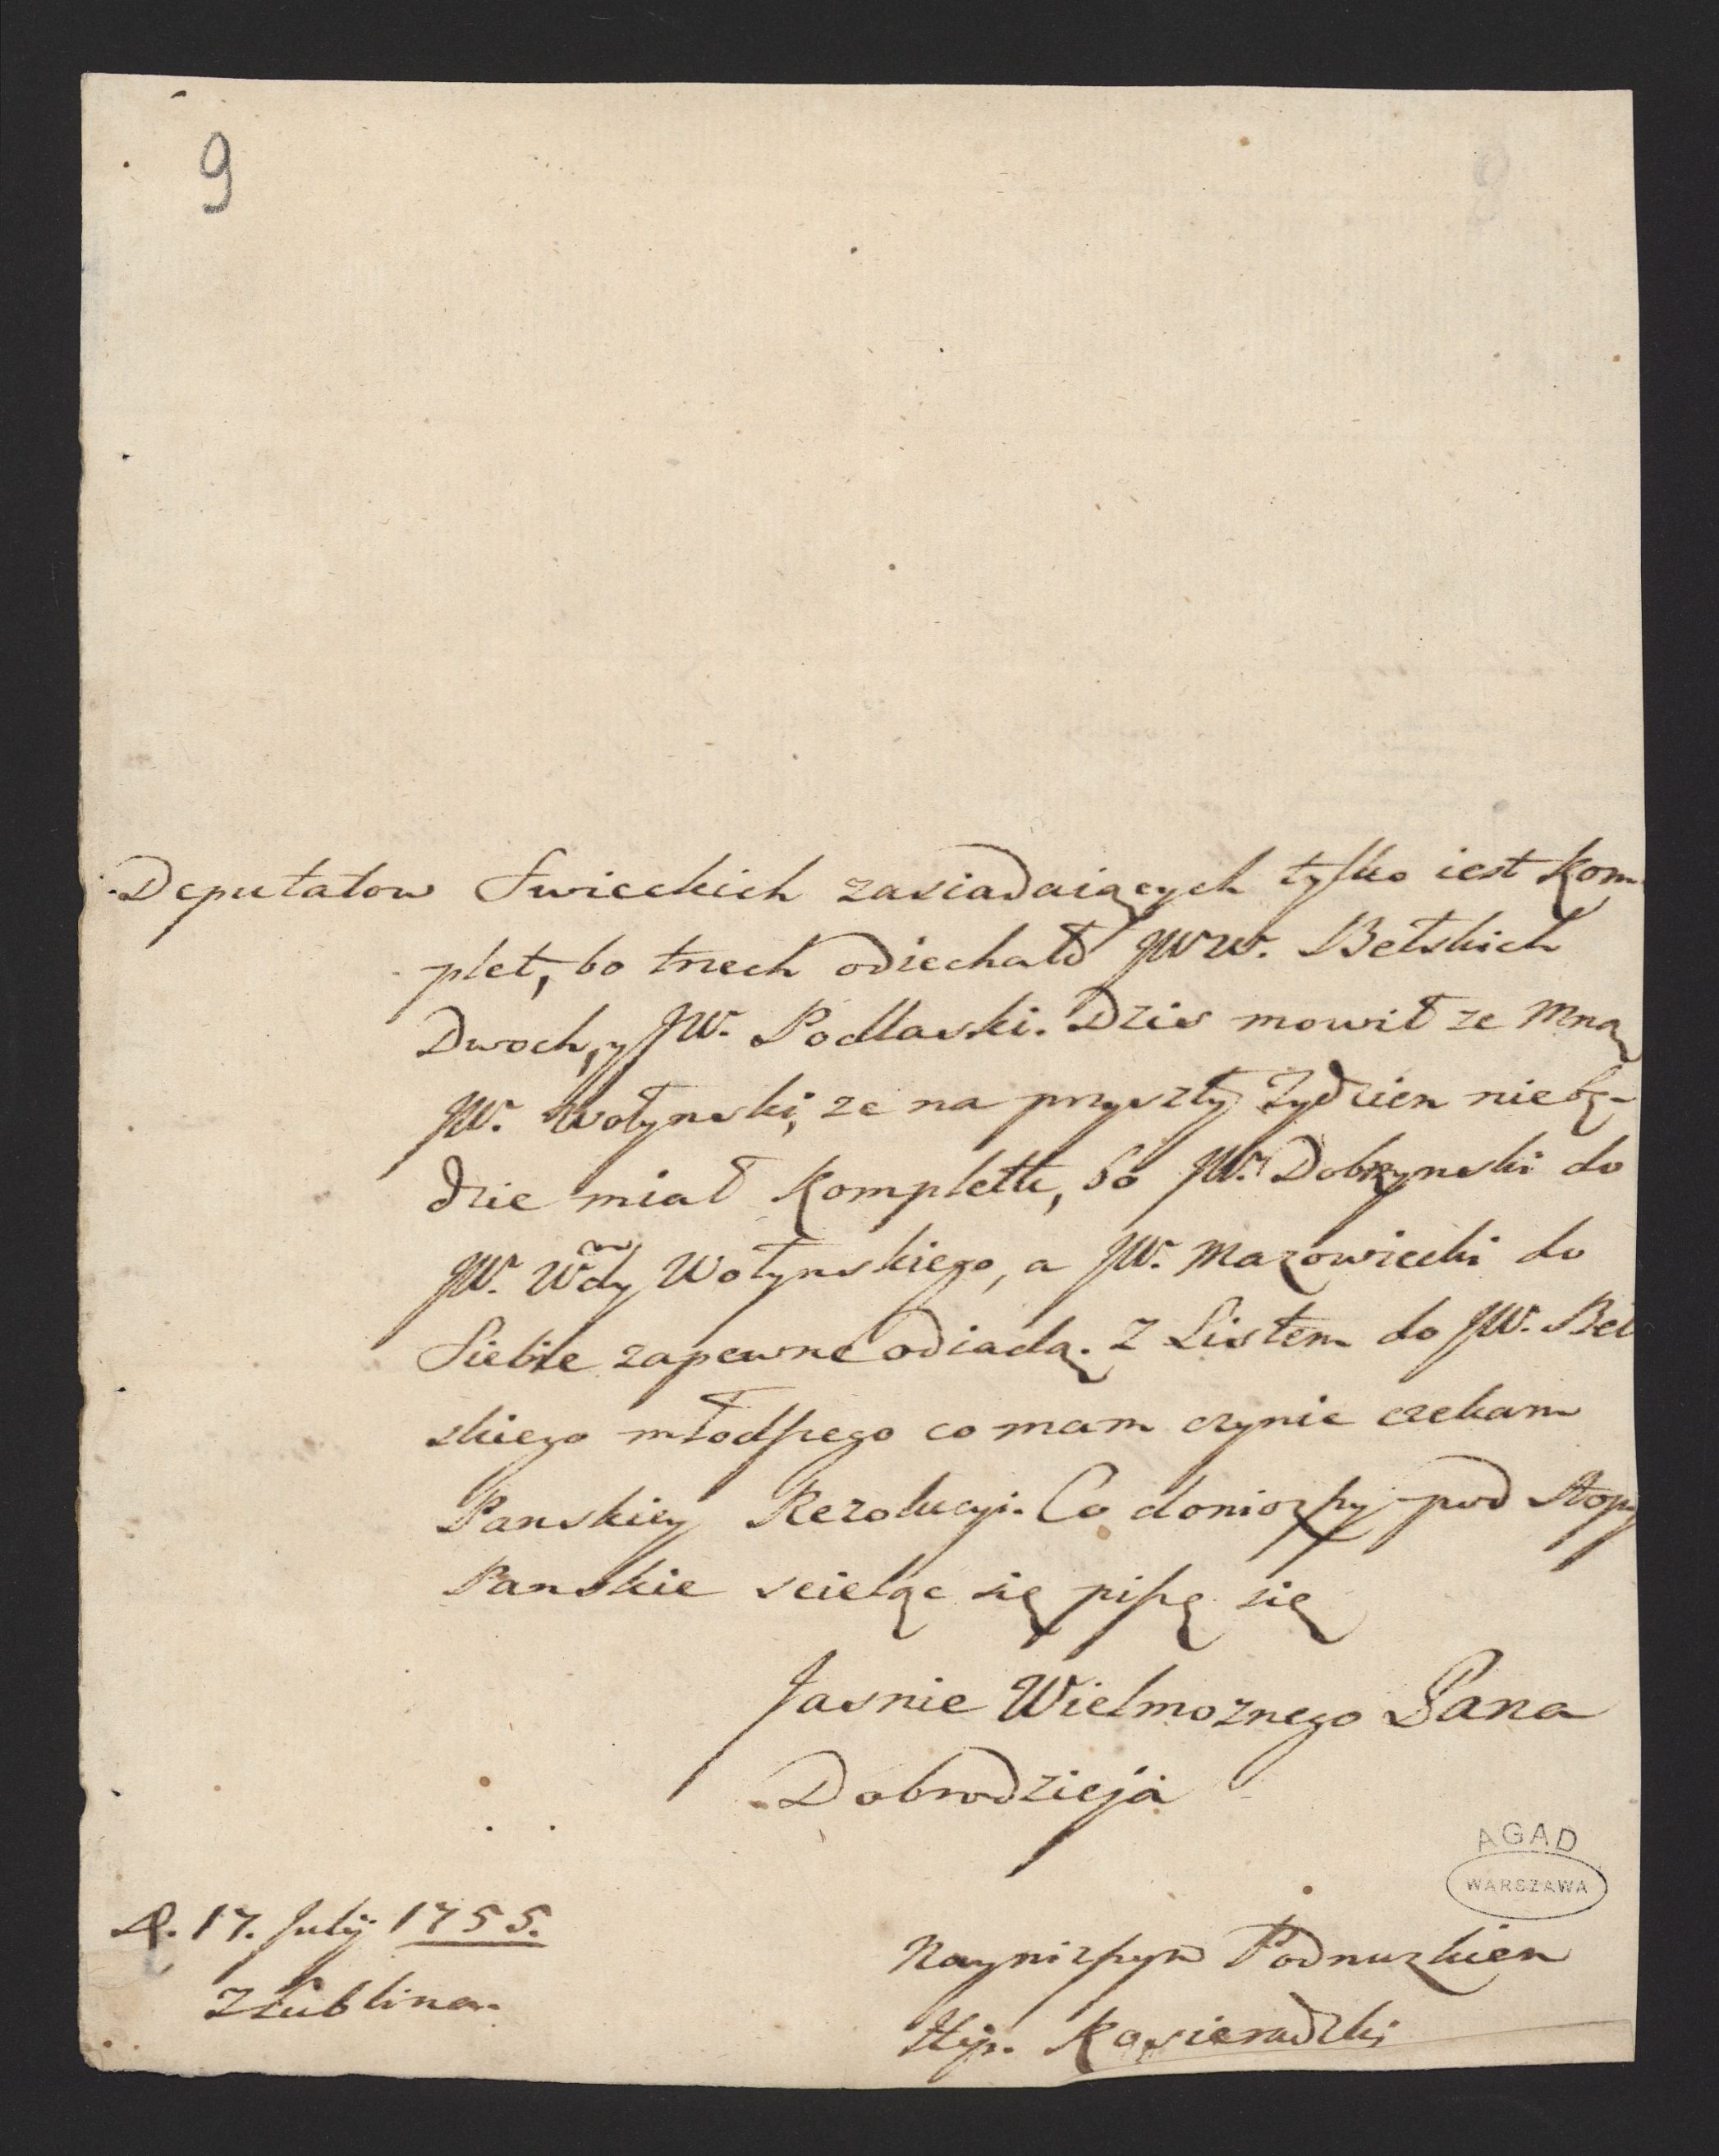 9
Deputatow Swieckich zasiadaiących tylko iest Kom
plet, bo trzech odiechałо JWW. Bełskich
Dwoch, y JW. Podlaski. Dzis mowił ze Mną
JW. Wołynski, ze na przyszły Tydzien niebę-
dzie miał Komplettu, bo JW. Dobrzynski do
JW. Wdy Wołynskiego, a JW. Mazowiecki do
Siebie zapewne odiadą. Z Listem do JW. Beł
skiego młodszego co mam czynic czekam
Panskiey Rezolucyi. Co doniozszy pod Stopy
Panskie scieląc się piszę się
Jasnie Wielmoznego Pana
Dobrodzieja
D. 17. July 1755.
z Lublina.
Nayniższym Podnuzkiem
Hip. Kosieradzki
AGAD
WARSZAWA